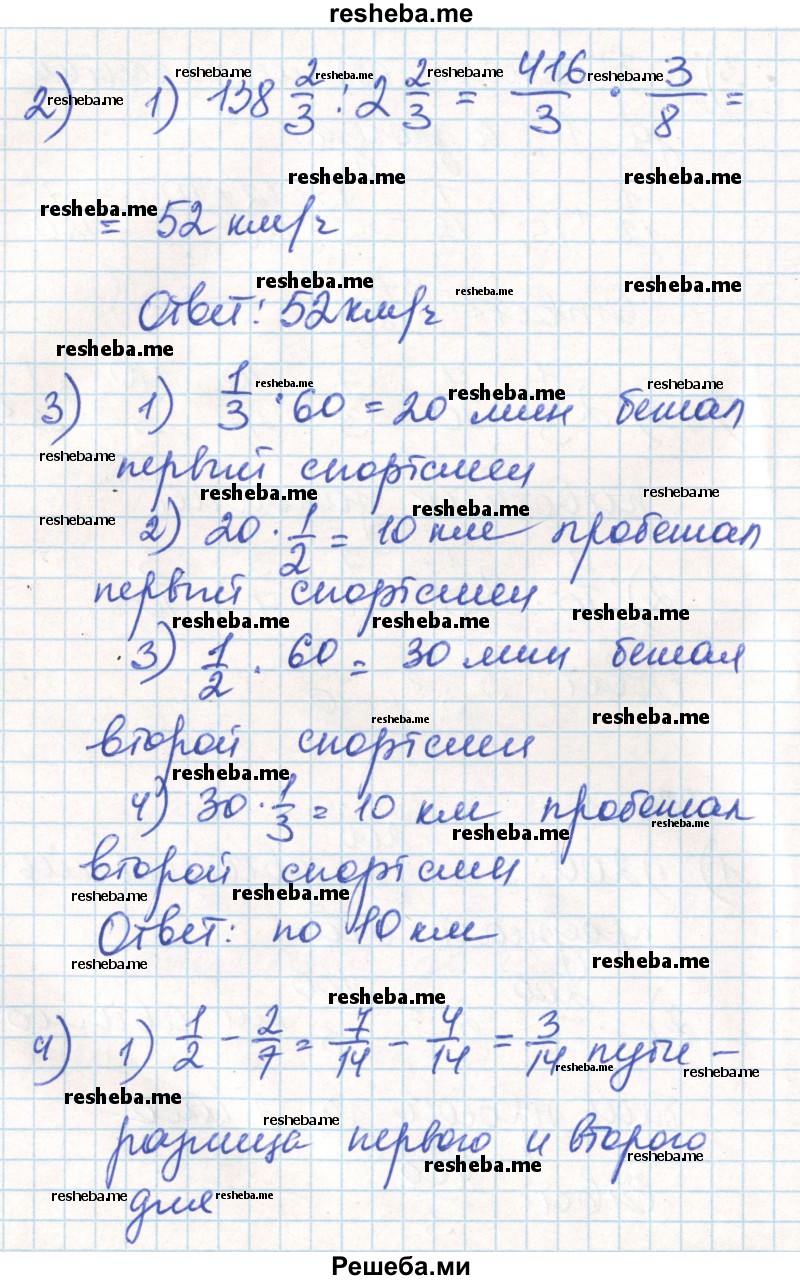 resheba.me
2) 1) 138 2/3 : 2 2/3 = 416/3 · 3/8 =
= 52 км/ч
Ответ: 52 км/ч
3) 1) 1/3 · 60 = 20 мин бежал
первый спортсмен
2) 20 · 1/2 = 10 км пробежал
первый спортсмен
3) 1/2 · 60 = 30 мин бежал
второй спортсмен
4) 30 · 1/3 = 10 км пробежал
второй спортсмен
Ответ: по 10 км
4) 1) 1/2 - 2/7 = 7/14 - 4/14 = 3/14 пути -
разница первого и второго
дня
Решеба.ми